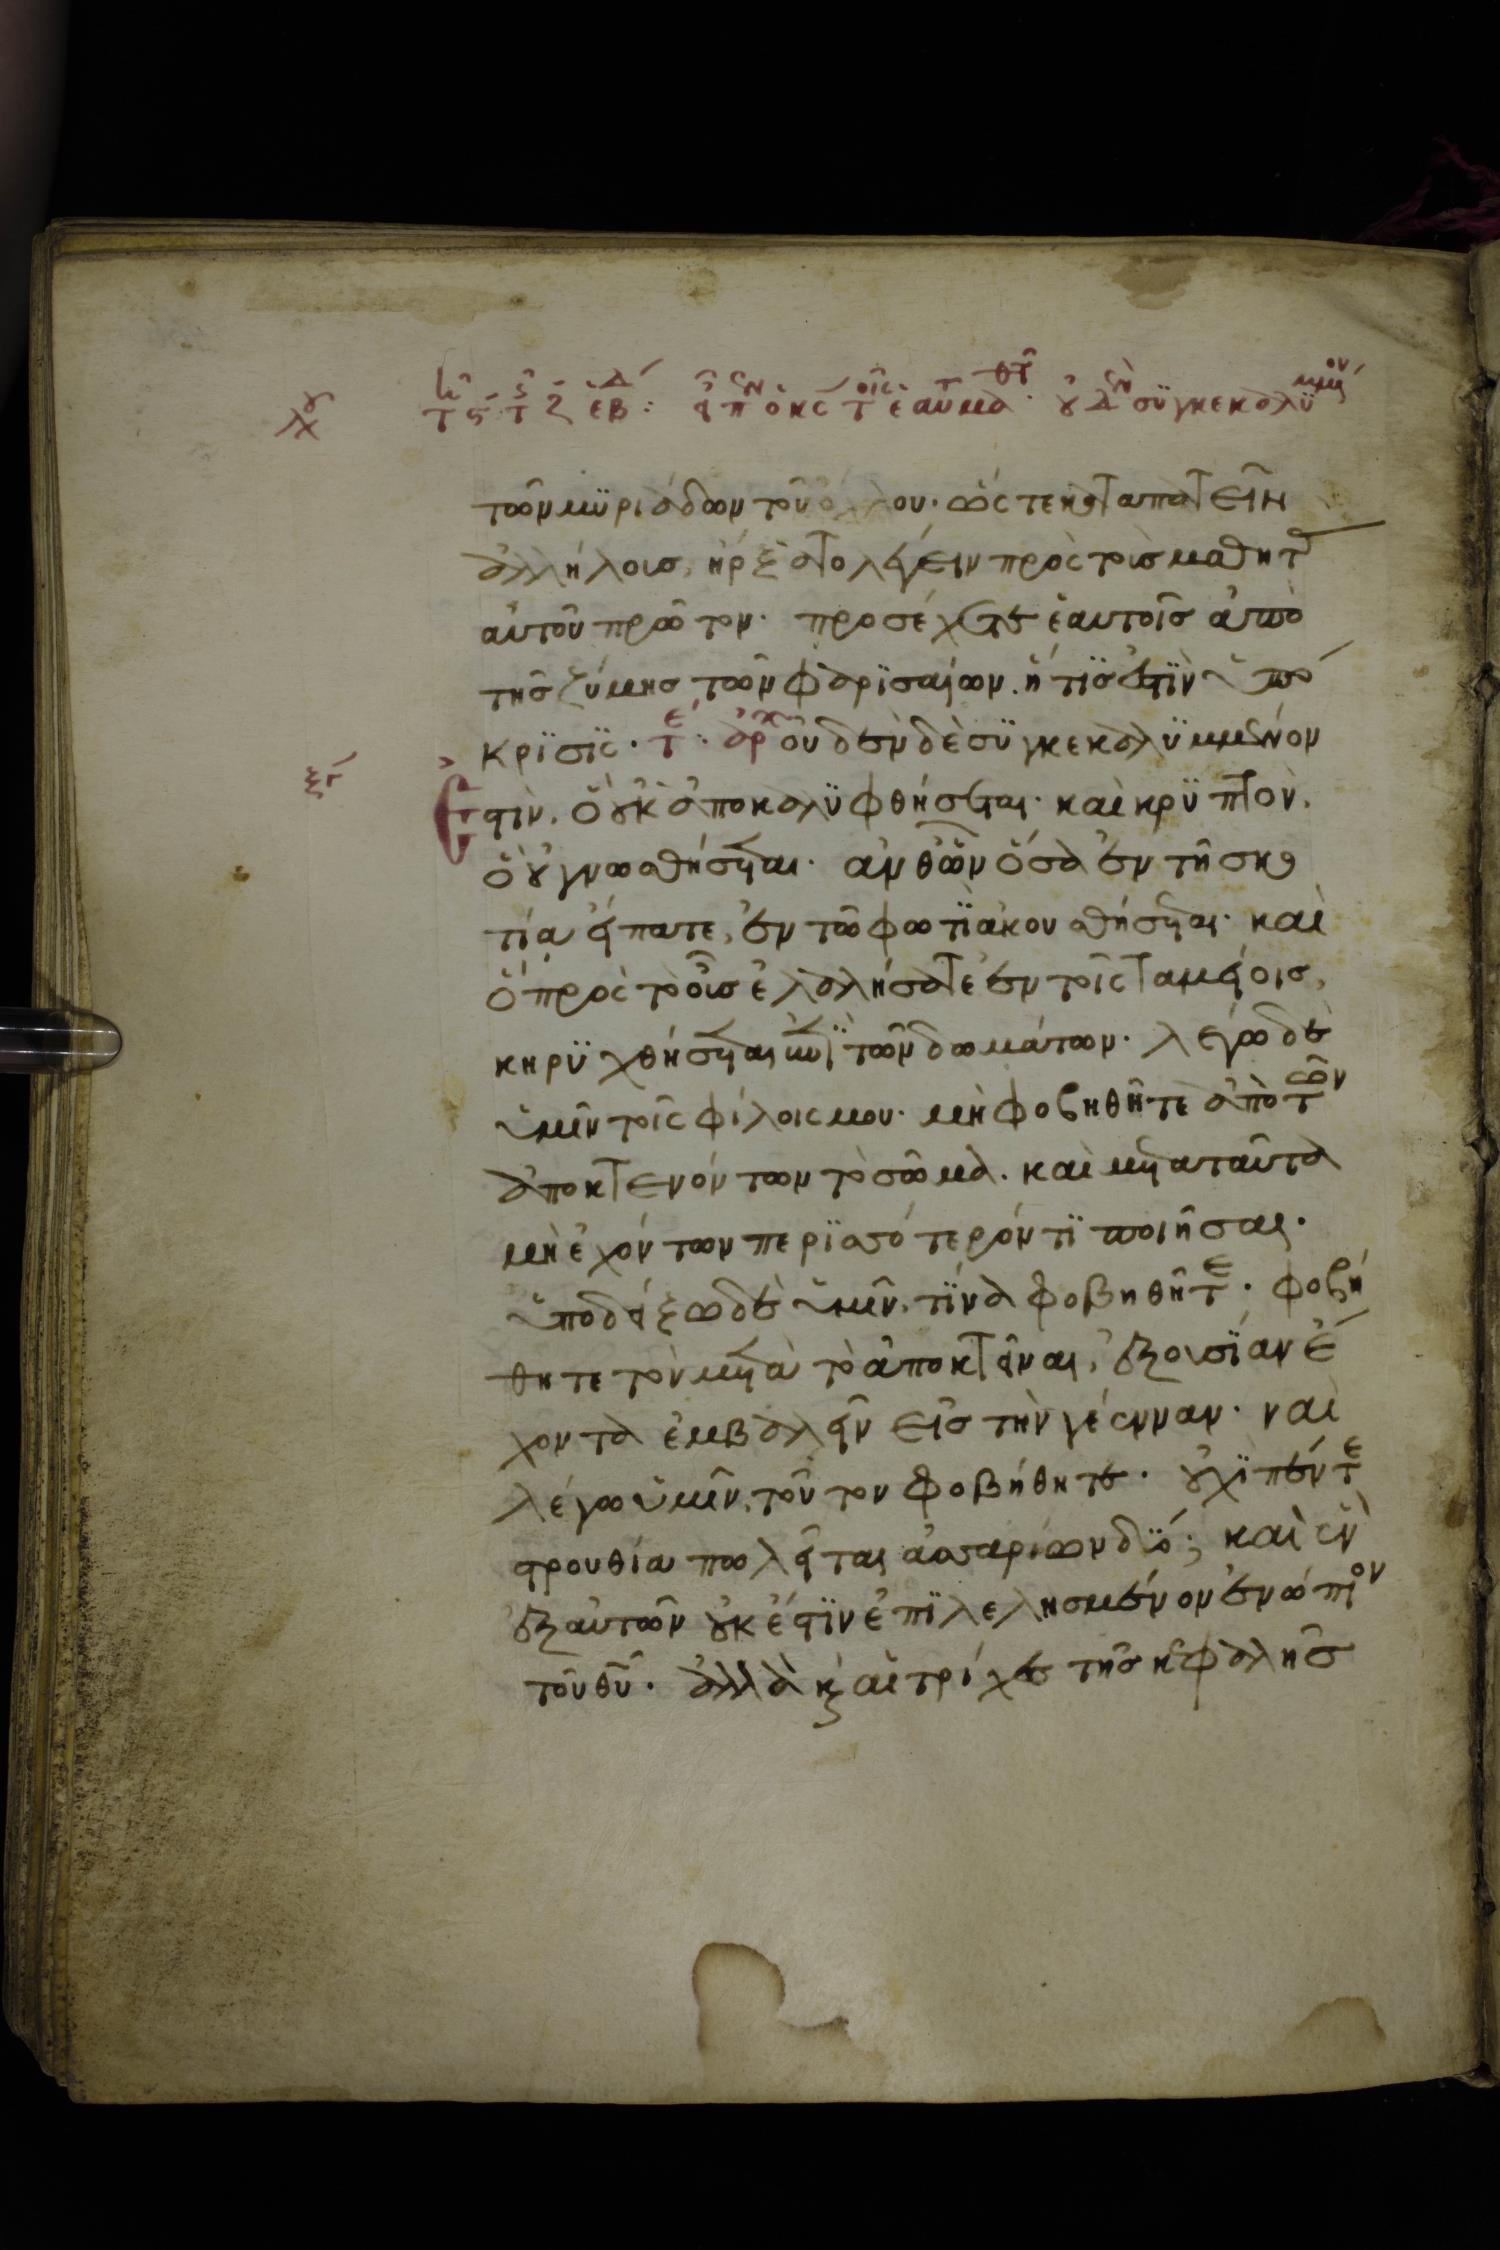 τῶν μϋριάδων τοῦ ὄχλου· ὥς τε καταπατεῖν
ἀλλήλοισ, ἤρξατο λέγειν πρὸς τοὺσ μαθητ
αὐτοῦ πρῶτον· προσέχετε ἑαυτοῖσ ἀπὸ
τῆσ ζύμησ τῶν φαρϊσαίων. ἥτϊσ ἐστῒν ὑπό
κρϊσϊς· τ ε ἀρχ οὐδὲν δὲ σϋγκεκαλϋμμένον
ξγ
ἐστὶν, ὃ οὐκ ἀποκαλϋφθήσεται· καὶ κρϋπτὸν,
ὃ οὐ γνωσθήσεται· ἀνθ ὧν ὅσα ἐν τῆ σκο
τία εἴπατε, ἐν τῶ φωτῒ ἀκουσθήσεται· καὶ
ὃ πρὸς τὸ οὖσ ἐλαλήσατε ἐν τοῖς ταμείοισ,
κηρϋχθήσεται ἐπῒ τῶν δωμάτων· λέγω δὲ
ὑμῖν τοῖς φίλοις μου· μὴ φοβηθῆτε ἀπὸ τῶν
ἀποκτενόντων τὸ σῶμα· καὶ μετὰ ταῦτα
μὴ ἐχόντων περϊσσότερόν τϊ ποιῆσαι·
ὑποδείξω δὲ ὑμῖν, τΐνα φοβηθῆτε· φοβή
θητε τὸν μετὰ τὸ ἀποκτεῖναι, ἐξουσΐαν ἔ
χοντα ἐμβαλεῖν εἰσ τὴν γέενναν· ναὶ
λέγω ὑμῖν, τοῦτον φοβήθητε· οὐχῒ πέντε
στρουθία πωλεῖται ἀσσαρίων δϋό; καὶ ἓν
ἐξ αὐτῶν οὐκ ἔστϊν ἐπϊλελησμένον ἐνώπιον
τοῦ θῦ· ἀλλὰ καὶ αἱ τρίχεσ τῆσ κεφαλῆσ